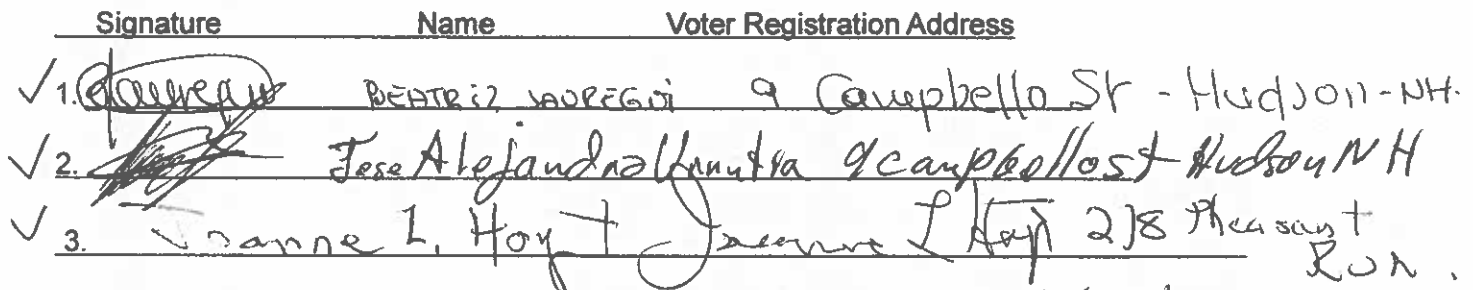 Signature Name Voter Registration Address
✓ 1. Jauregui BEATRiZ JAUREGUi 9 Campbello St - Hudson - NH.
✓ 2. Jose Alejandro Urrutia 9 campbello st Hudson NH
✓ 3. Joanne L. Hoyt Joanne L Hoyt 218 Pheasant
Run.